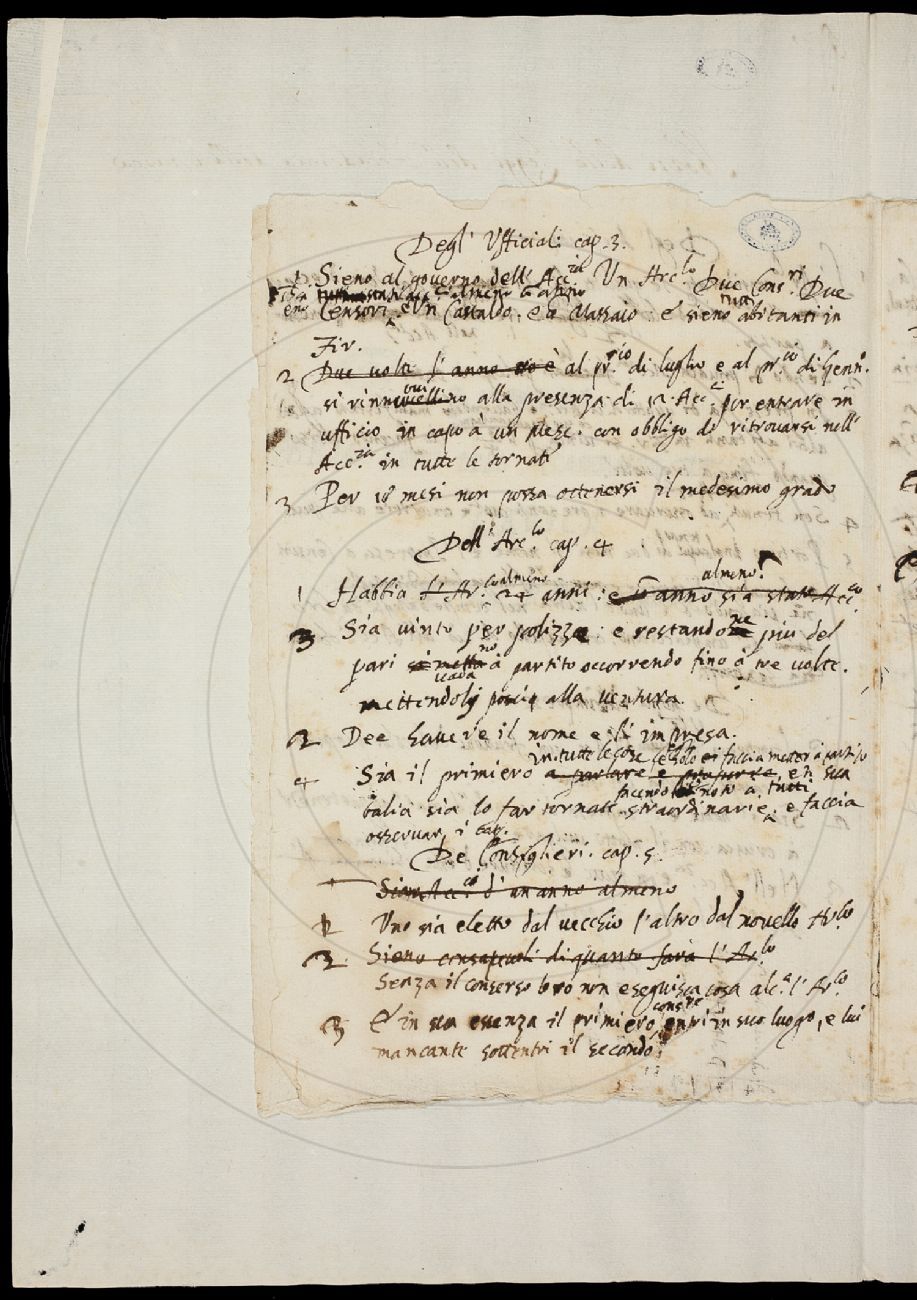 Degl' Ufficiali cap. 3.
1. Sieno al governo dell' Acc.ia Un Arc.lo Due Cons.ri Due
Censori, e Un Castaldo, e Massaio: e sieno tutti abitanti in
Fir.
2 Due volte l'anno cioè al pr.cio di luglio e al pr.cio di Genn.
si rinnuovino alla presenza di 12 Acc.ci per entrare in
ufficio in capo à un mese. con obbligo di ritrovarsi nell'
Acc.ia in tutte le tornate
3 Per 18 mesi non possa ottenersi il medesimo grado
Dell' Arc.lo cap. 4
1 Habbia l'Ar.co almeno 24 anni: e un anno sia stato Acc.co
almeno
3 Sia vinto per polizze: e restandone piu del
pari si metta vadano à partito occorrendo fino à tre volte.
mettendoli poscia alla ventura
2 Dee havere il nome e l'impresa.
in tutte le cose ed solo ei faccia metter à partito
4 Sia il primiero a parlare e proporre, e in sua
facendolo noto a tutti
balìa sia lo far tornate straordinarie, e faccia
osservar i cap.
De Consiglieri. cap. 5.
Sieno Acc.ci d' un anno almeno
1 Uno sia eletto dal vecchio l'altro dal novello Ar.lo
2 Sieno consapevoli di quanto farà l'Ar.lo
Senza il consenso loro non eseguisca cosa alc.a l'Ar.lo
3 E in sua essenza il primiero cons.re entri in suo luogo, e lui
mancante sottentri il secondo.